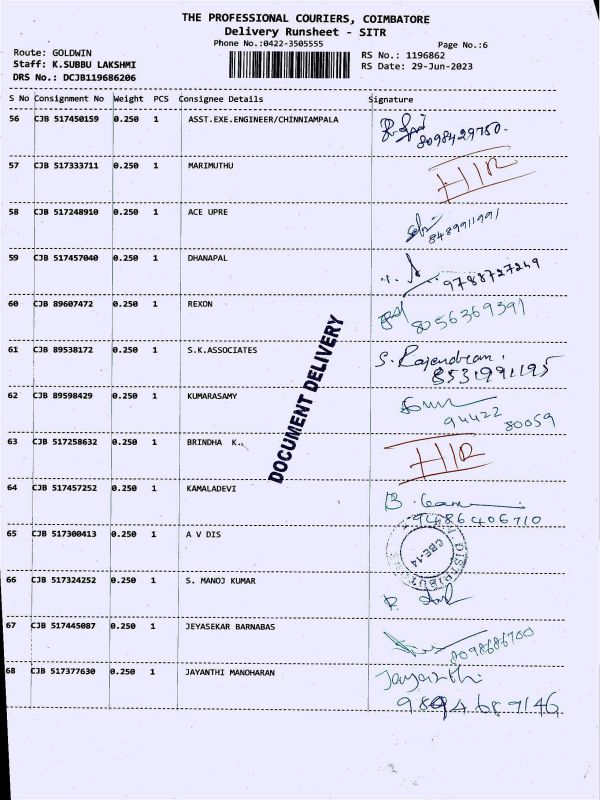 THE PROFESSIONAL COURIERS, COIMBATORE
Delivery Runsheet - SITR
Phone No.:0422-3505555
Page No.:6
Route: GOLDWIN
RS No.: 1196862
Staff: K.SUBBU LAKSHMI
RS Date: 29-Jun-2023
DRS No.: DCJB119686206
S No Consignment No Weight PCS Consignee Details Signature
56 CJB 517450159 0.250 1 ASST.EXE.ENGINEER/CHINNIAMPALA
8098429750.
57 CJB 517333711 0.250 1 MARIMUTHU
58 CJB 517248910 0.250 1 ACE UPRE
8489911991
59 CJB 517457040 0.250 1 DHANAPAL
9788727249
60 CJB 89607472 0.250 1 REXON
8056369391
61 CJB 89538172 0.250 1 S.K.ASSOCIATES S. Rajendran.
8531991195
DOCUMENT DELIVERY
62 CJB 89598429 0.250 1 KUMARASAMY
94422 80059
63 CJB 517258632 0.250 1 BRINDHA K.
64 CJB 517457252 0.250 1 KAMALADEVI
9486406710
65 CJB 517300413 0.250 1 A V DIS
CBE-14
66 CJB 517324252 0.250 1 S. MANOJ KUMAR
67 CJB 517445087 0.250 1 JEYASEKAR BARNABAS
8098686700
68 CJB 517377630 0.250 1 JAYANTHI MANOHARAN Jayanthi
9894687146